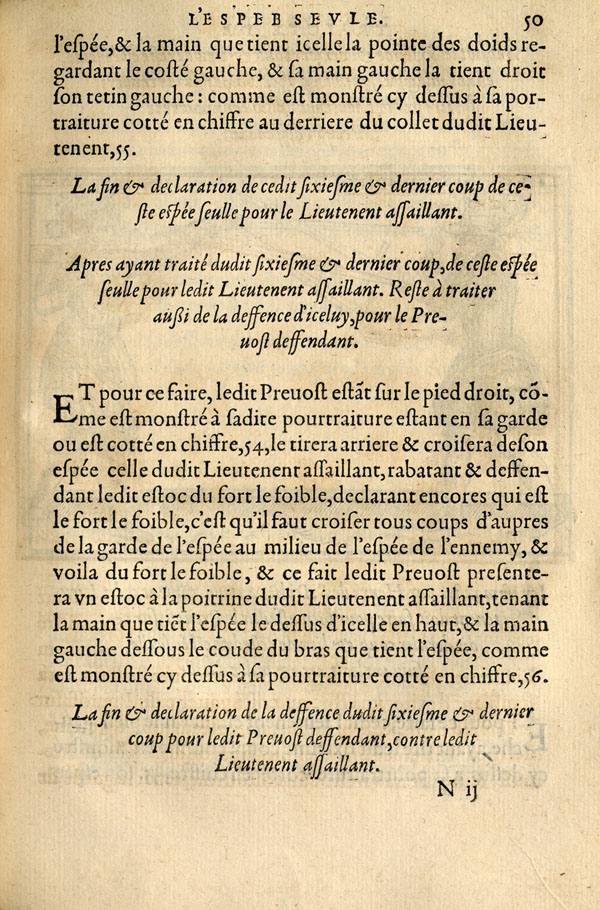 L'ESPEB SEVLE. 50
l'eſpée,& la main que tient icelle la pointe des doids re-
gardant le coſté gauche, & ſa main gauche la tient droit
ſon tetin gauche : comme eſt monſtré cy deſſus à ſa por-
traiture cotté en chiffre au derriere du collet dudit Lieu-
tenent,55.
La fin & declaration de cedit ſixieſme & dernier coup de ce-
ſte eſpée ſeulle pour le Lieutenent aſſaillant.
Apres ayant traité dudit ſixieſme & dernier coup,de ceſte eſpée
ſeulle pour ledit Lieutenent aſſaillant. Reſte à traiter
außi de la deffence d'iceluy,pour le Pre-
uoſt deffendant.
ET pour ce faire, ledit Preuoſt eſtãt ſur le pied droit, cõ-
me eſt monſtré à ſadite pourtraiture eſtant en ſa garde
ou eſt cotté en chiffre,54,le tirera arriere & croiſera deſon
eſpée celle dudit Lieutenent aſſaillant,rabatant & deffen-
dant ledit eſtoc du fort le foible,declarant encores qui eſt
le fort le foible,c'eſt qu'il faut croiſer tous coups d'aupres
de la garde de l'eſpée au milieu de l'eſpée de l'ennemy, &
voila du fort le foible, & ce fait ledit Preuoſt preſente-
ra vn eſtoc à la poitrine dudit Lieutenent aſſaillant,tenant
la main que tiẽt l'eſpée le deſſus d'icelle en haut,& la main
gauche deſſous le coude du bras que tient l'eſpée, comme
eſt monſtré cy deſſus à ſa pourtraiture cotté en chiffre,56.
La fin & declaration de la deffence dudit ſixieſme & dernier
coup pour ledit Preuoſt deffendant,contre ledit
Lieutenent aſſaillant.
N ij